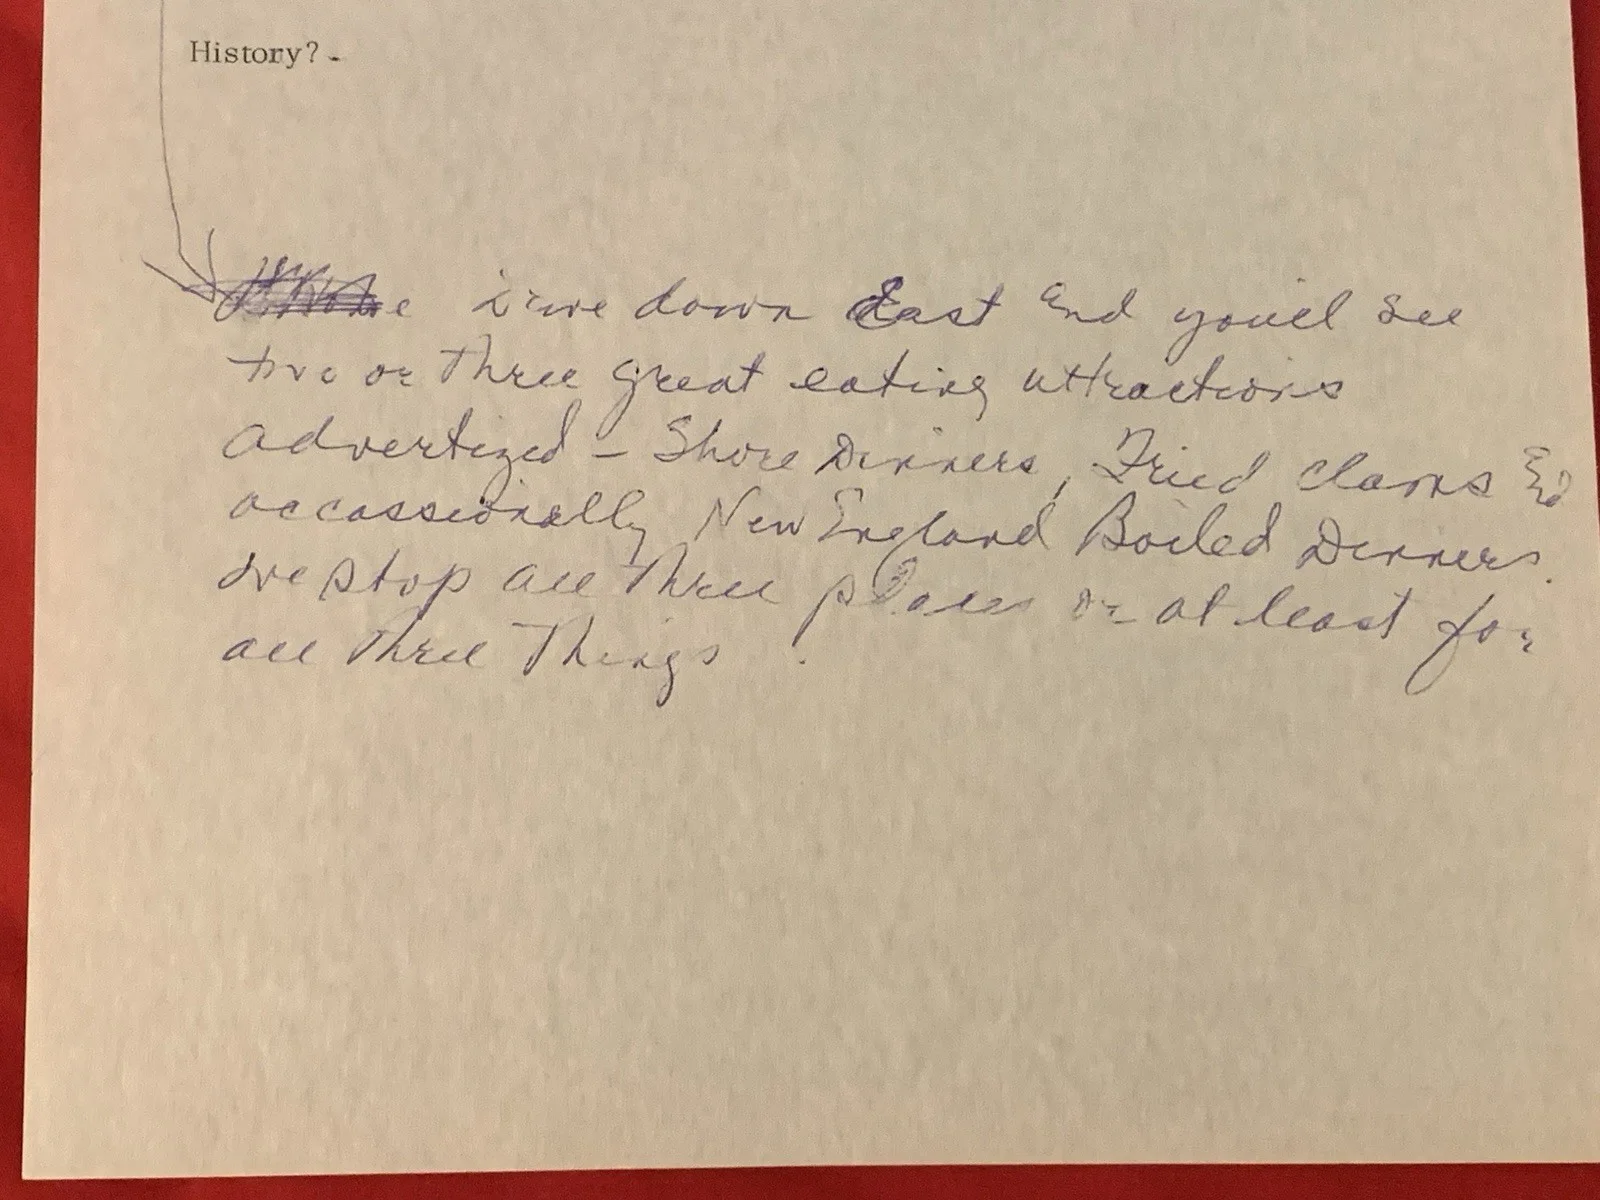 History? -
Drive down East and you'll see
two or three great eating attractions
advertized - Shore Dinners, Fried clams and
occassionally New England Boiled Dinners.
We stop all three places or at least for
all three things.